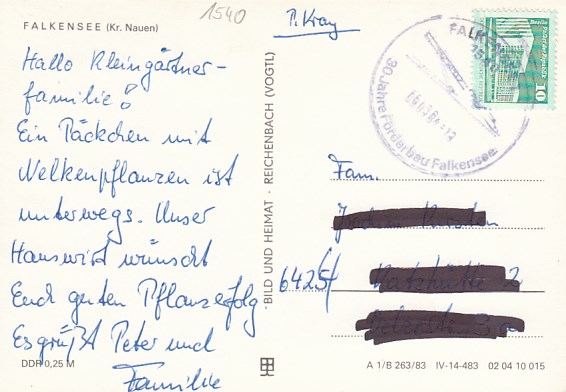 FALKENSEE (Kr. Nauen)
1540
P. Kray
Hallo Kleingärtner-
familie!
Ein Päckchen mit
Welkenpflanzen ist
unterwegs. Unser
Hauswirt wünscht
Euch guten Pflanzerfolg
Es grüßt Peter und
Familie
DDR 0,25 M
BILD UND HEIMAT · REICHENBACH (VOGTL)
FALKENSEE
30 Jahre Förderbau Falkensee
10
Fam.
6425
A 1/B 263/83 IV-14-483 02 04 10 015